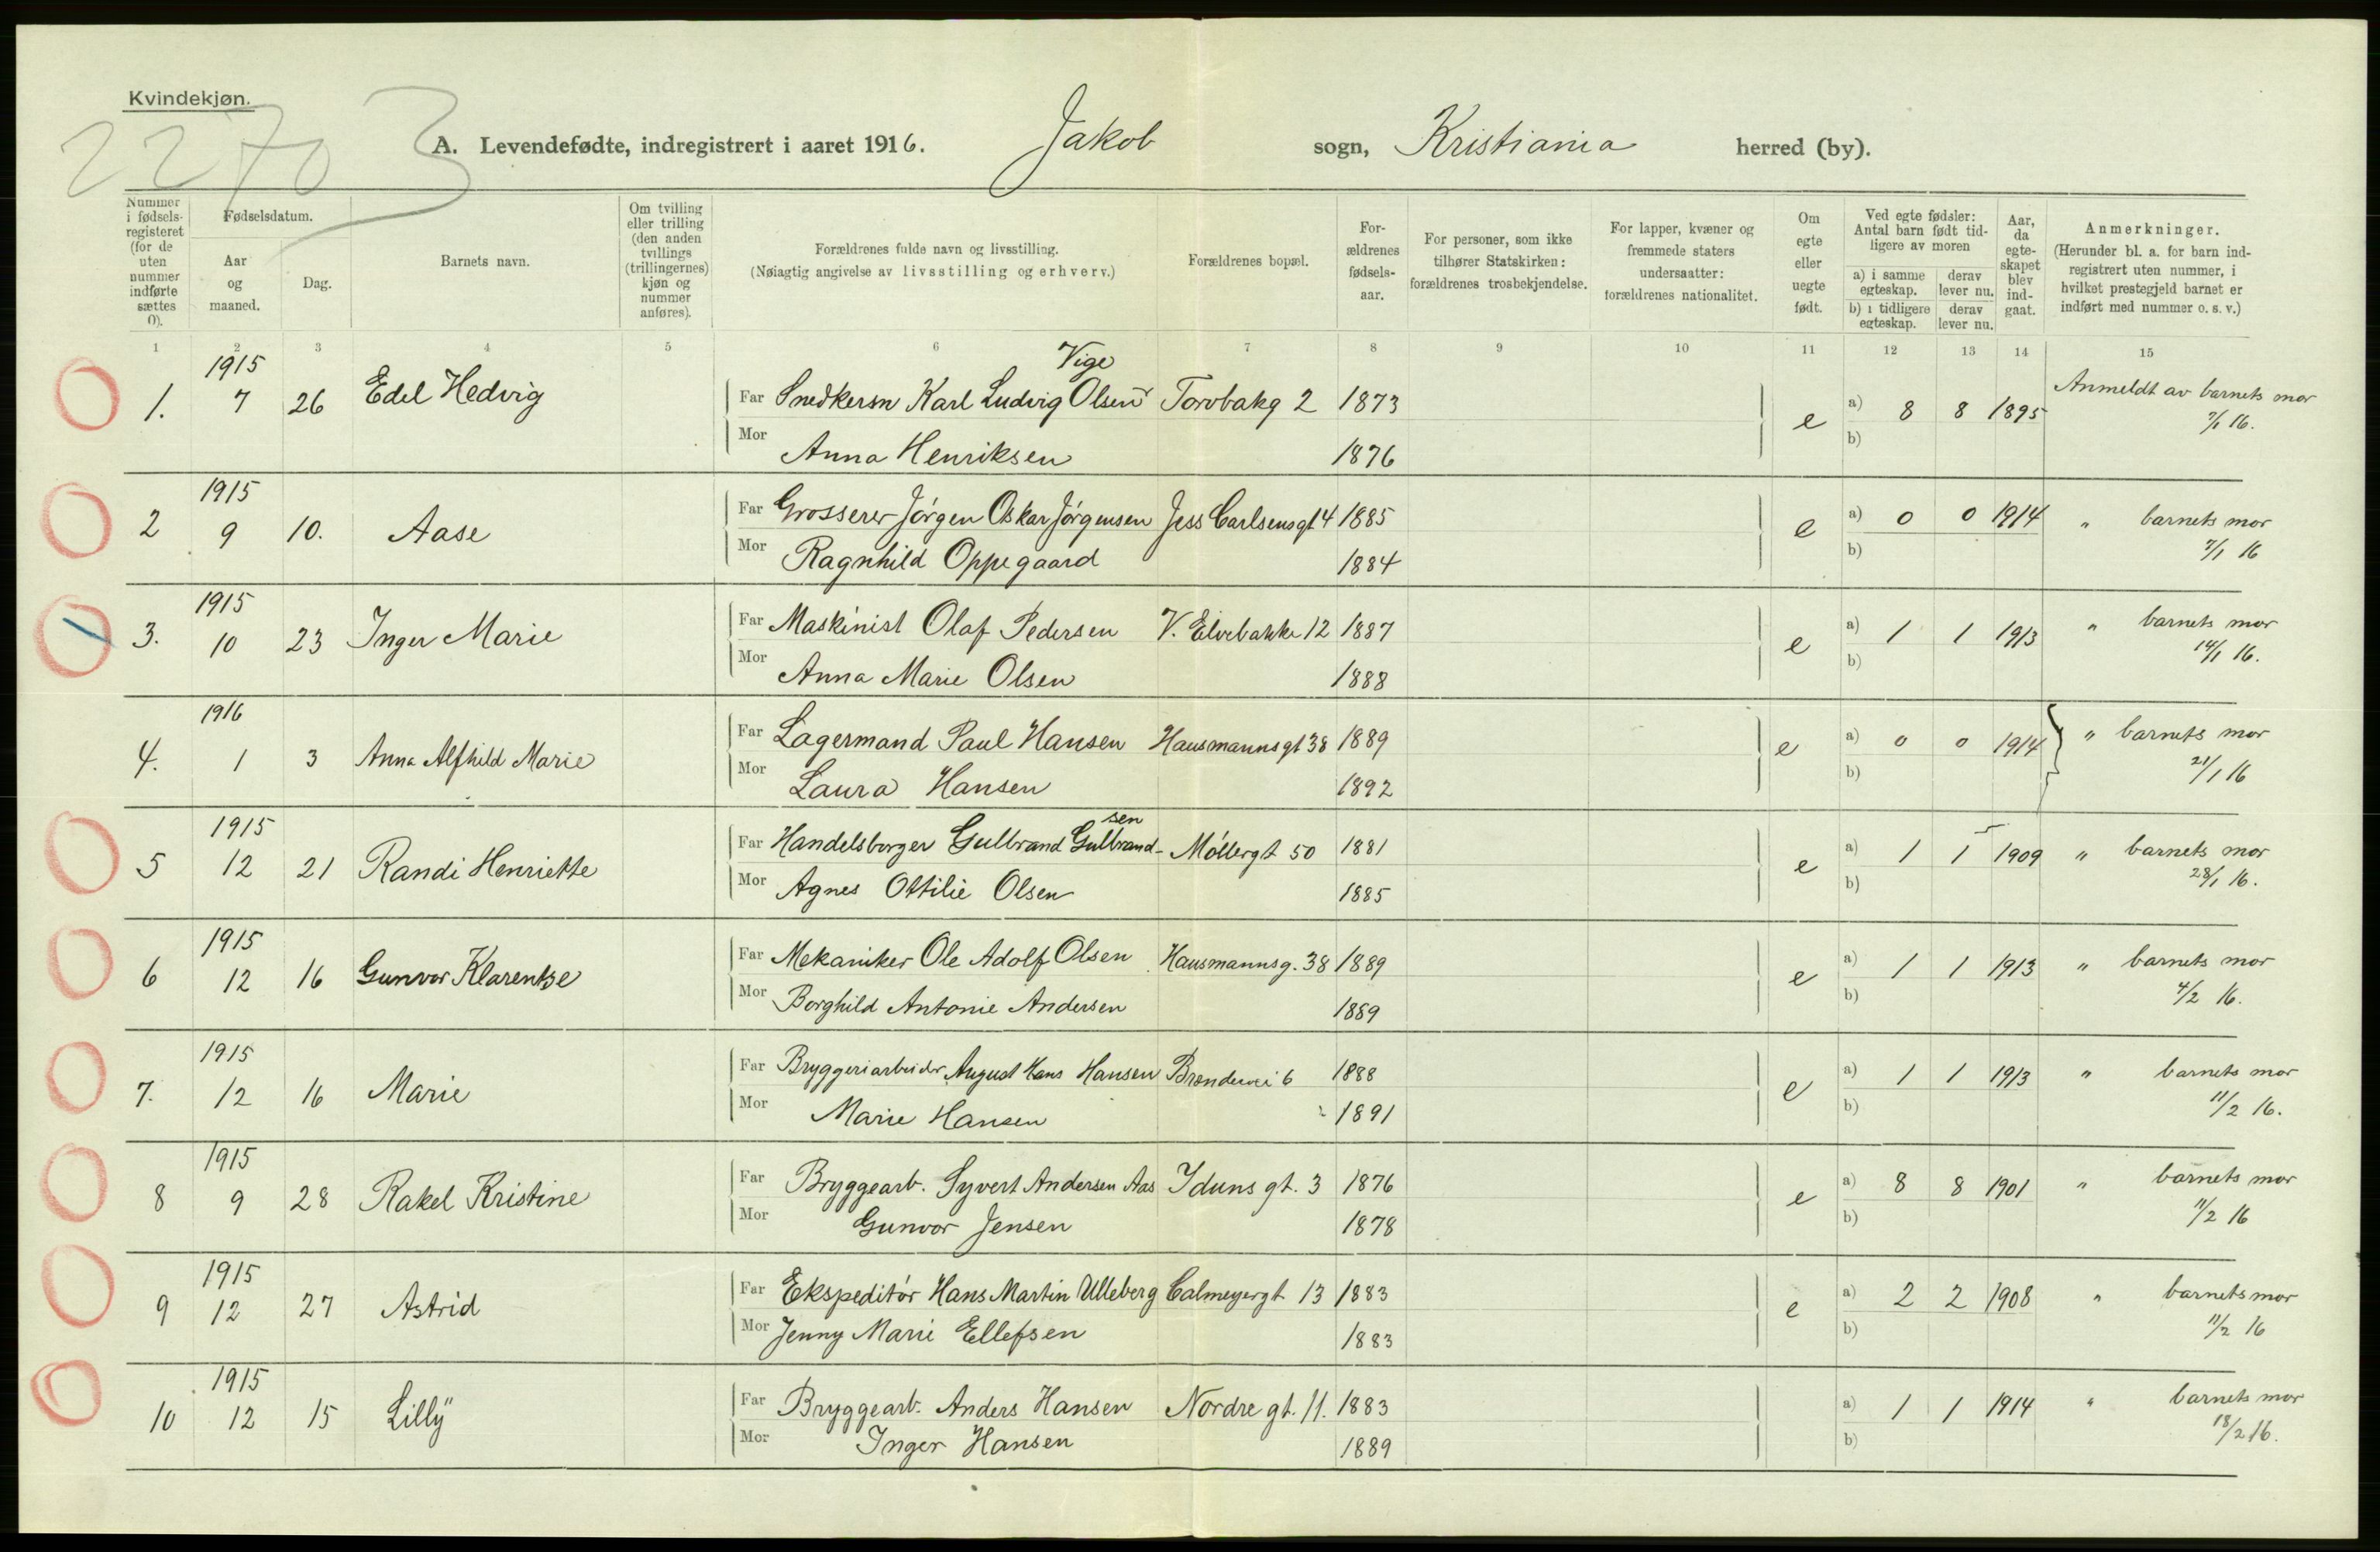 Kvindekjøn.
2270 3
A. Levendefødte, indregistrert i aaret 1916. Jakob sogn, Kristiania herred (by).
Nummer i fødsels-registeret (for de uten nummer indførte sættes 0).
Fødselsdatum.
Aar og maaned.
Dag.
Barnets navn.
Om tvilling eller trilling (den anden tvillings (trillingernes) kjøn og nummer anføres).
Forældrenes fulde navn og livsstilling.
(Nøiagtig angivelse av livsstilling og erhverv.)
Forældrenes bopæl.
For-ældrenes fødsels-aar.
For personer, som ikke tilhører Statskirken: forældrenes trosbekjendelse.
For lapper, kvæner og fremmede staters undersaatter: forældrenes nationalitet.
Om egte eller uegte født.
Ved egte fødsler: Antal barn født tid-ligere av moren
a) i samme egteskap. derav lever nu.
b) i tidligere egteskap. derav lever nu.
Aar, da egte-skapet blev ind-gaat.
Anmerkninger.
(Herunder bl. a. for barn ind-registrert uten nummer, i hvilket prestegjeld barnet er indført med nummer o. s. v.)
1 2 3 4 5 6 7 8 9 10 11 12 13 14 15
1915 Vige
1. 7 26 Edel Hedvig Far Snedkersn Karl Ludvig Olsen Torvbakg 2 1873 e a) 8 8 1895 Anmeldt av barnets mor
Mor Anna Henriksen 1876 b) 7/1 16.
1915
2 9 10. Aase Far Grosserer Jørgen Oskar Jørgensen Jess Carlsensgt 4 1885 e a) 0 0 1914 " barnets mor
Mor Ragnhild Oppegaard 1884 b) 7/1 16
1915
3. 10 23 Inger Marie Far Maskinist Olaf Pedersen V. Elvebakke 12 1887 e a) 1 1 1913 " barnets mor
Mor Anna Marie Olsen 1888 b) 14/1 16.
1916
4. 1 3 Anna Alfhild Marie Far Lagermand Paul Hansen Hausmannsgt 38 1889 e a) 0 0 1914 " barnets mor
Mor Laura Hansen 1892 b) 21/1 16
1915 sen
5 12 21 Randi Henriette Far Handelsborger Gulbrand Gulbrand- Møllergt 50 1881 e a) 1 1 1909 " barnets mor
Mor Agnes Ottilie Olsen 1885 b) 28/1 16.
1915
6 12 16 Gunvor Klarentse Far Mekaniker Ole Adolf Olsen Hausmannsg. 38 1889 e a) 1 1 1913 " barnets mor
Mor Borghild Antonie Andersen 1889 b) 4/2 16.
1915
7. 12 16 Marie Far Bryggeriarbeider August Hans Hansen 6 1888 e a) 1 1 1913 " barnets mor
Mor Marie Hansen 1891 b) 11/2 16.
1915
8 9 28 Rakel Kristine Far Bryggearb. Syvert Andersen Aas Iduns gt. 3 1876 e a) 8 8 1901 " barnets mor
Mor Gunvor Jensen 1878 b) 11/2 16
1915
9 12 27 Astrid Far Ekspeditør Hans Martin Ulleberg Calmeyergt 13 1883 e a) 2 2 1908 " barnets mor
Mor Jenny Marie Ellefsen 1883 b) 11/2 16
1915
10 12 15 Lilly Far Bryggearb. Anders Hansen Nordre gt. 11. 1883 a) 1 1 1914 " barnets mor
Mor Inger Hansen 1889 b) 18/2 16.